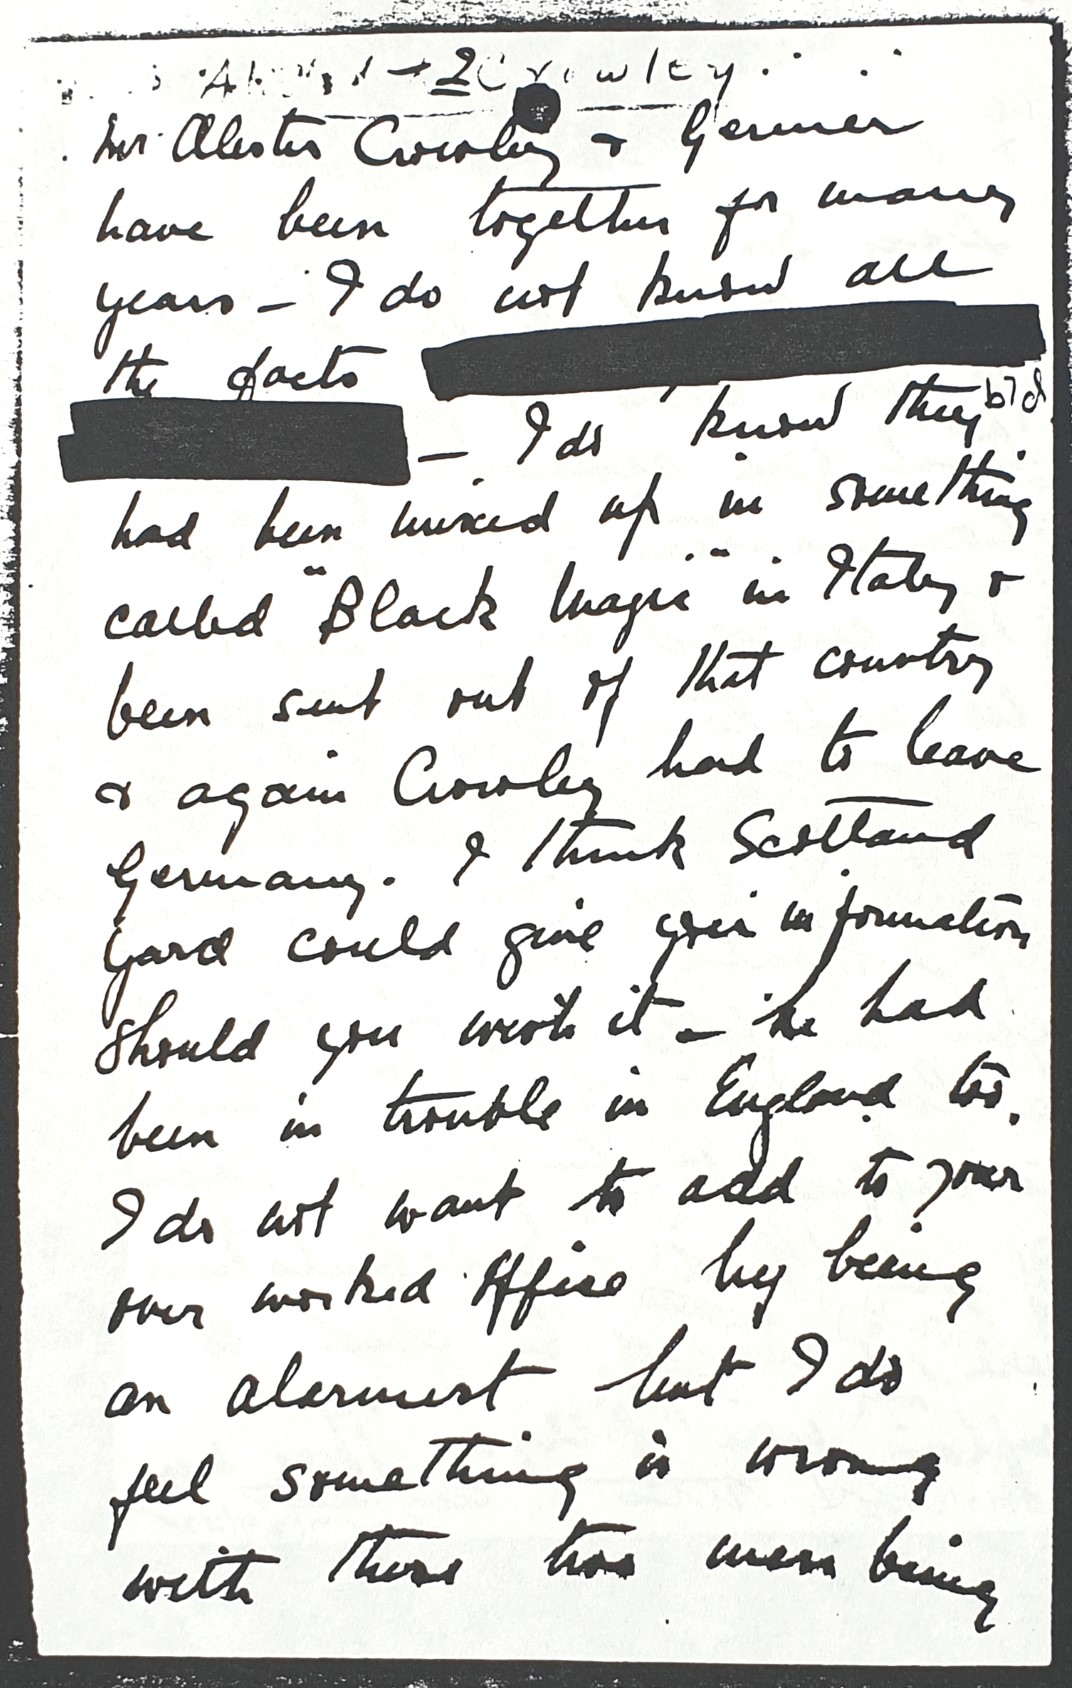 2 Crowley.
Mr Alester Crowley & Germer
have been together for many
years – I do not know all
the facts
b7d
– I do know they
had been mixed up in something
called "Black Magic" in Italy &
been sent out of that country
& again Crowley had to leave
Germany. I think Scotland
Yard could give you information
should you wish it – he had
been in trouble in England too.
I do not want to add to your
over worked office by being
an alarmist but I do
feel something is wrong
with these two men being